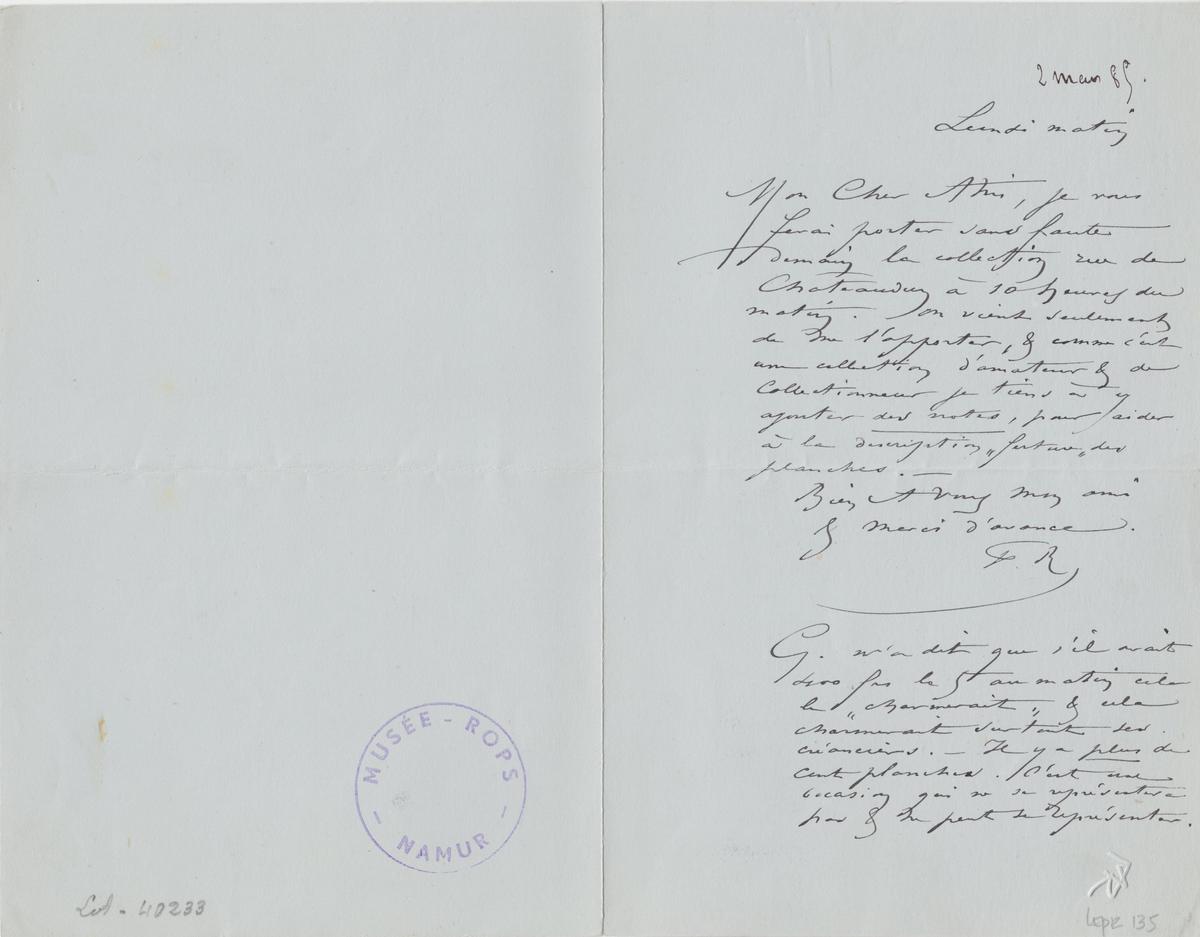 2 mars 85.
Lundi matin
Mon Cher Ami, je vous
ferai porter sans faute
demain la collection rue de
Chateaudun à 10 heures du
matin. On vient seulement
de me l'apporter, & comme c'est
une collection d'amateur & de
Collectionneur je tiens à y
ajouter des notes, pour aider
à la description des
planches. —
Bien A Vous mon ami
& merci d'avance.
F. R
G. m'a dit que s'il avait
400 frs le 5 au matin cela
le „charmerait„ & cela
charmerait surtout ses
créanciers. — Il y a plus de
cent planches. C'est une
occasion qui ne se représentera
pas & ne peut se représenter.
MUSÉE - ROPS
- NAMUR -
40233
Lepr 135